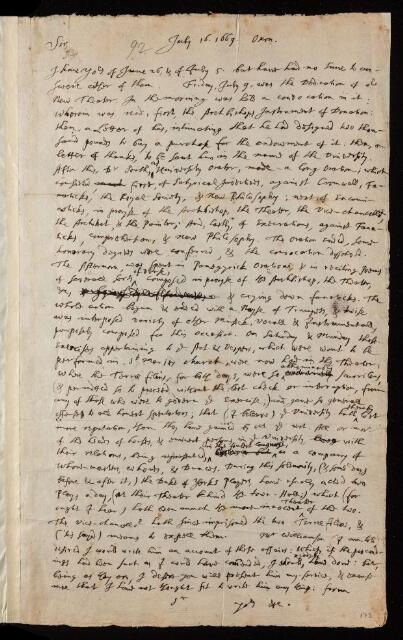 July 16. 1669 Oxon.
Sir,
92
I have yors of June 26, & of July 5. but have had no time to an-
swer either of them. Friday, July 9, was the Dedication of
New Theater. In the morning was held a convocation in it:
wherein was read, first, the Archbishops Instrument of Donation:
then, a Letter of his, intimating that he had designed two thou-
sand pounds to buy a purchase for the endowment of it: then, a
letter of thanks, to be sent him in the name of the University.
After this, Dr South, University orator, made a long Oration; which
consisted first, of Satyrical invectives, against Cromwell, Fa-
naticks, the Royal Society, & New Philosophy: next, of Encomi-
asticks, in praise of the Archbishop, the Theater, the Vice-chancellor
the Architect & the Painter: And, lastly, of Execrations, against Fana-
ticks, Comprehension, & New Philosophy. The Oration ended, some
honorary degrees were conferred, & the convocation dissolved.
The Afternoon, was spent in Panegyrick Orations, & in reciting Poems
of severall sorts, composed in praise of the Archbishop, the Theater,
& crying down fanaticks. The
whole action began & ended with a Noyse of Trumpets, & twice
was interposed variety of other Musick, vocall & Instrumentall,
purposely composed for this occasion. On Saturday & Munday those
Exercises appertaining to the Act & Vespers, which were wont to be
performed in St Maries church, were now had in the Theater,
Where the Terrae filius, for both days, were so scurrilous,
(& permitted so to proceed without the least check or interruption, from
any of those who were to govern the Exercise,) and gave so general
offense to all honest spectators; that (I believe) the University hath lost
more reputation, than they have gained by all the rest. All or most
of the heads of houses, & eminent persons in the University with
their relations, being represented, as a company of
whore-masters, whores, & Dunces. During this solemnity, (& some days
before & after it,) the Duke of Yorks Players have dayly acted two
Plays a day, (as their Theater behind the Town-Hall;) which (for
ought I hear) hath been much the more innocent of the two.
The Vice-chancellor hath since imprisoned the two Terrae filius, &
(tis sayd) means to expell them. Mr Williamson (I am told)
desired I would write him an account of these affairs: Which, if the proceed-
ings had been such as I could have commended, I should have done: but,
being as they are, I desire you will present him my service, & excuse
me, that I have not thought fit to write him any thing: from
Sr
Yors &c.